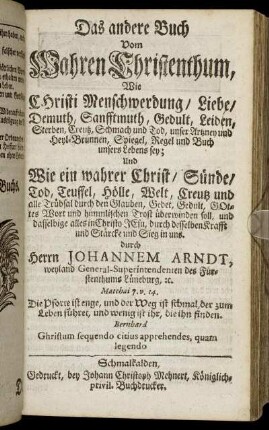 Das andere Buch
Vom
Wahren Christenthum,
Wie
CHristi Menschwerdung/ Liebe/
Demuth, Sanfftmuth, Gedult, Leiden,
Sterben, Creutz, Schmach und Tod, unser Artzney und
Heyl-Brunnen, Spiegel, Regel und Buch
unsers Lebens sey;
Und
Wie ein wahrer Christ/ Sünde/
Tod, Teuffel, Hölle, Welt, Creutz und
alle Trübsal durch den Glauben, Gebet, Gedult, GOt-
tes Wort und himmlischen Trost überwinden soll, und
dasselbige alles in Christo JEsu, durch desselben Krafft
und Stärcke und Sieg in uns.
durch
Herrn JOHANNEM ARNDT,
weyland General-Superintendenten des Für-
stenthums Lüneburg, ⁊c.
Matthäi 7. v. 14.
Die Pforte ist enge, und der Weg ist schmal, der zum
Leben führet, und wenig ist ihr, die ihn finden.
Bernhard
Christum sequendo citius apprehendes, quam
legendo
Schmalkalden,
Gedruckt, bey Johann Christoph Mehnert, Königlich-
privil. Buchdrucker.